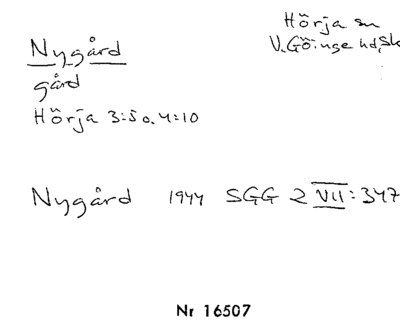 Hörja sn
V. Göinge hd, Sk
Nygård
gård
Hörja 3:5 o. 4:10
Nygård 1944 SGG 2 VII: 347
Nr 16507